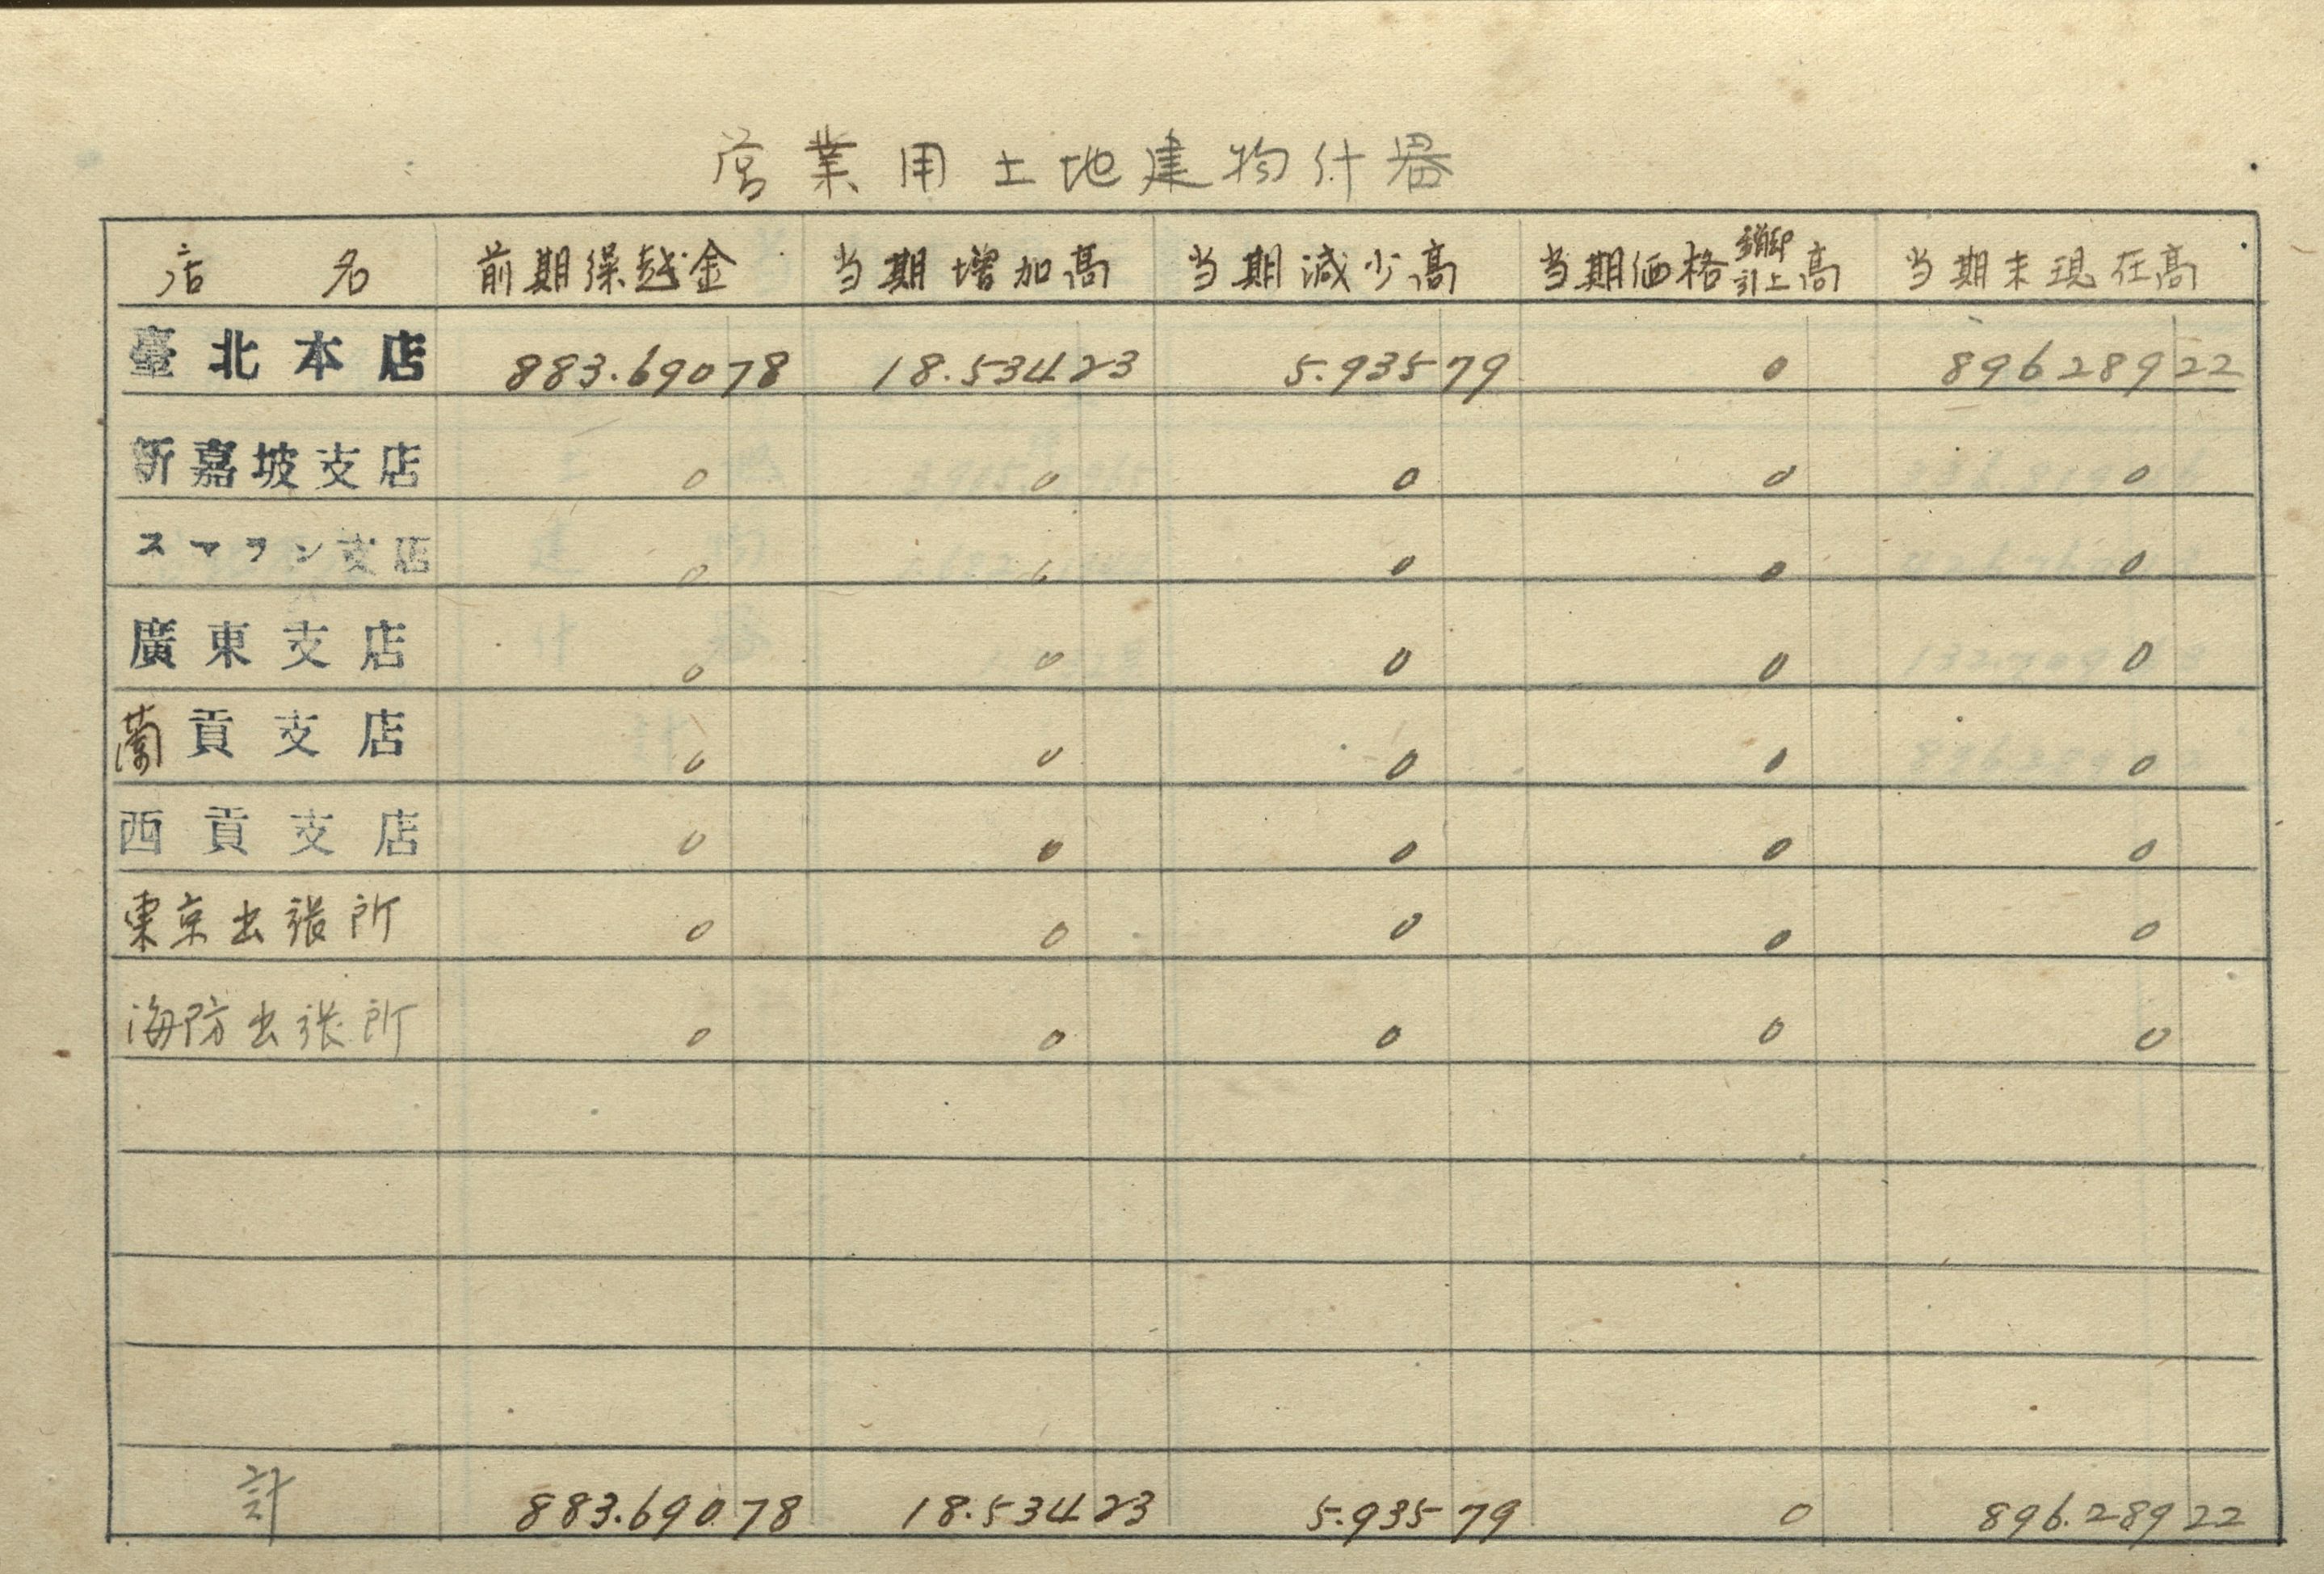 営業用土地建物什器
店名 前期繰越金 当期増加高 当期減少高 当期価格銷却引上高 当期末現在高
臺北本店 883.690 78 18.534 23 5.935 79 0 896289 22
新嘉坡支店 0 0 0 0 0
スマラン支店 0 0 0 0 0
廣東支店 0 0 0 0 0
蘭貢支店 0 0 0 0 0
西貢支店 0 0 0 0 0
東京出張所 0 0 0 0 0
海防出張所 0 0 0 0 0
計 883.690 78 18.534 23 5.935 79 0 896.289 22